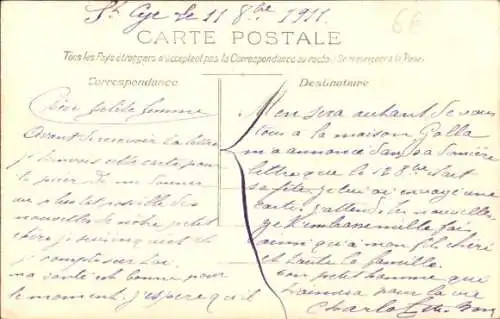 St Cyr le 11 8bre 1911
6 E
CARTE POSTALE
Tous les Pays étrangers n'acceptent pas la Correspondance au recto (Se renseigner à la Poste)
Correspondance
Destinataire
Chère petite femme
Avant de recevoir ta lettre
je t'envoie cette carte pour
te prier de me donner
au plus tôt possible des
nouvelles de notre petit
chéri je suis inquiet
je compte sur toi.
ma santé est bonne pour
le moment. j'espère qu'il
Men sera autant de vous
tous à la maison
m'a annonce dans sa dernière
lettre que le 12 8bre
sa fête je lui ai envoyé une
carte j'attends les nouvelles
je t'embrasse mille fois
ainsi qu'à mon fils chéri
et toute la famille.
ton petit homme qui
t'aimera pour la vie